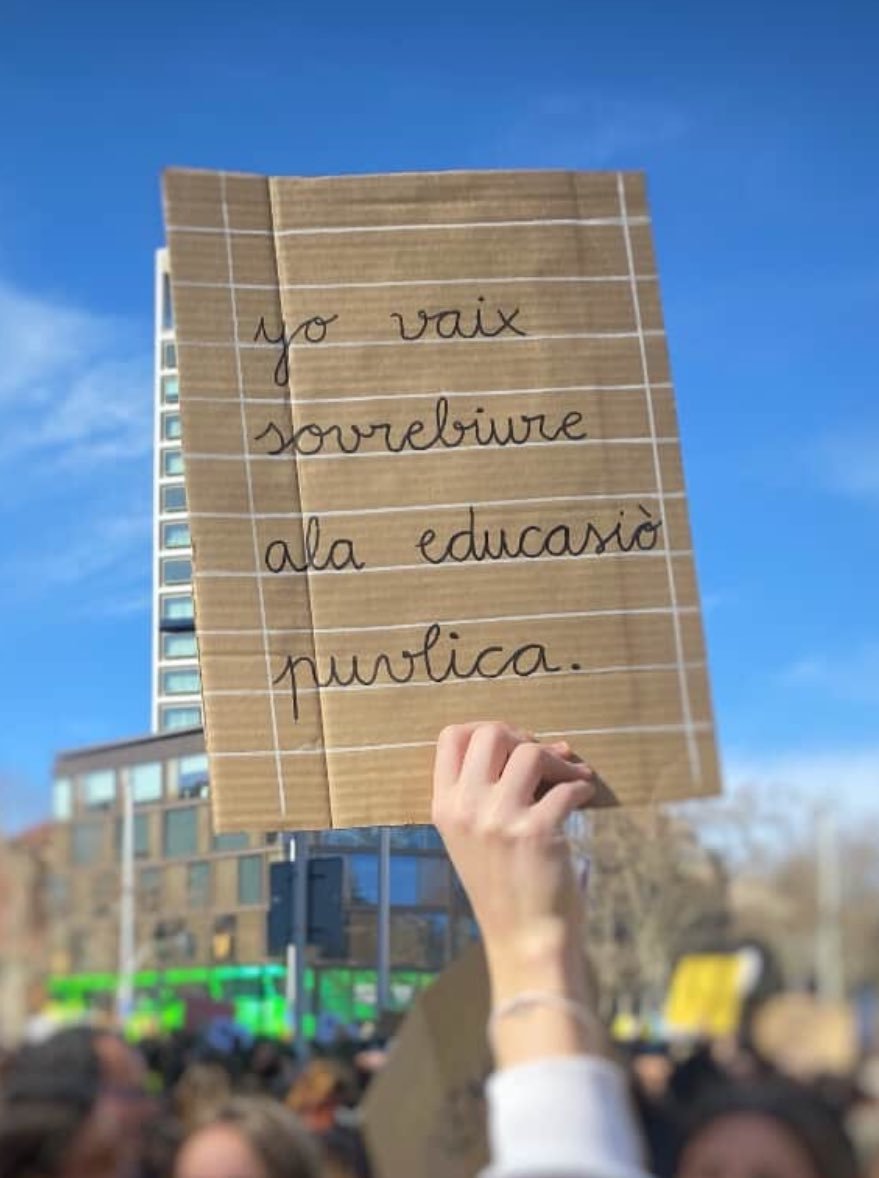 yo vaix
sovrebiure
ala educasiò
puvlica.